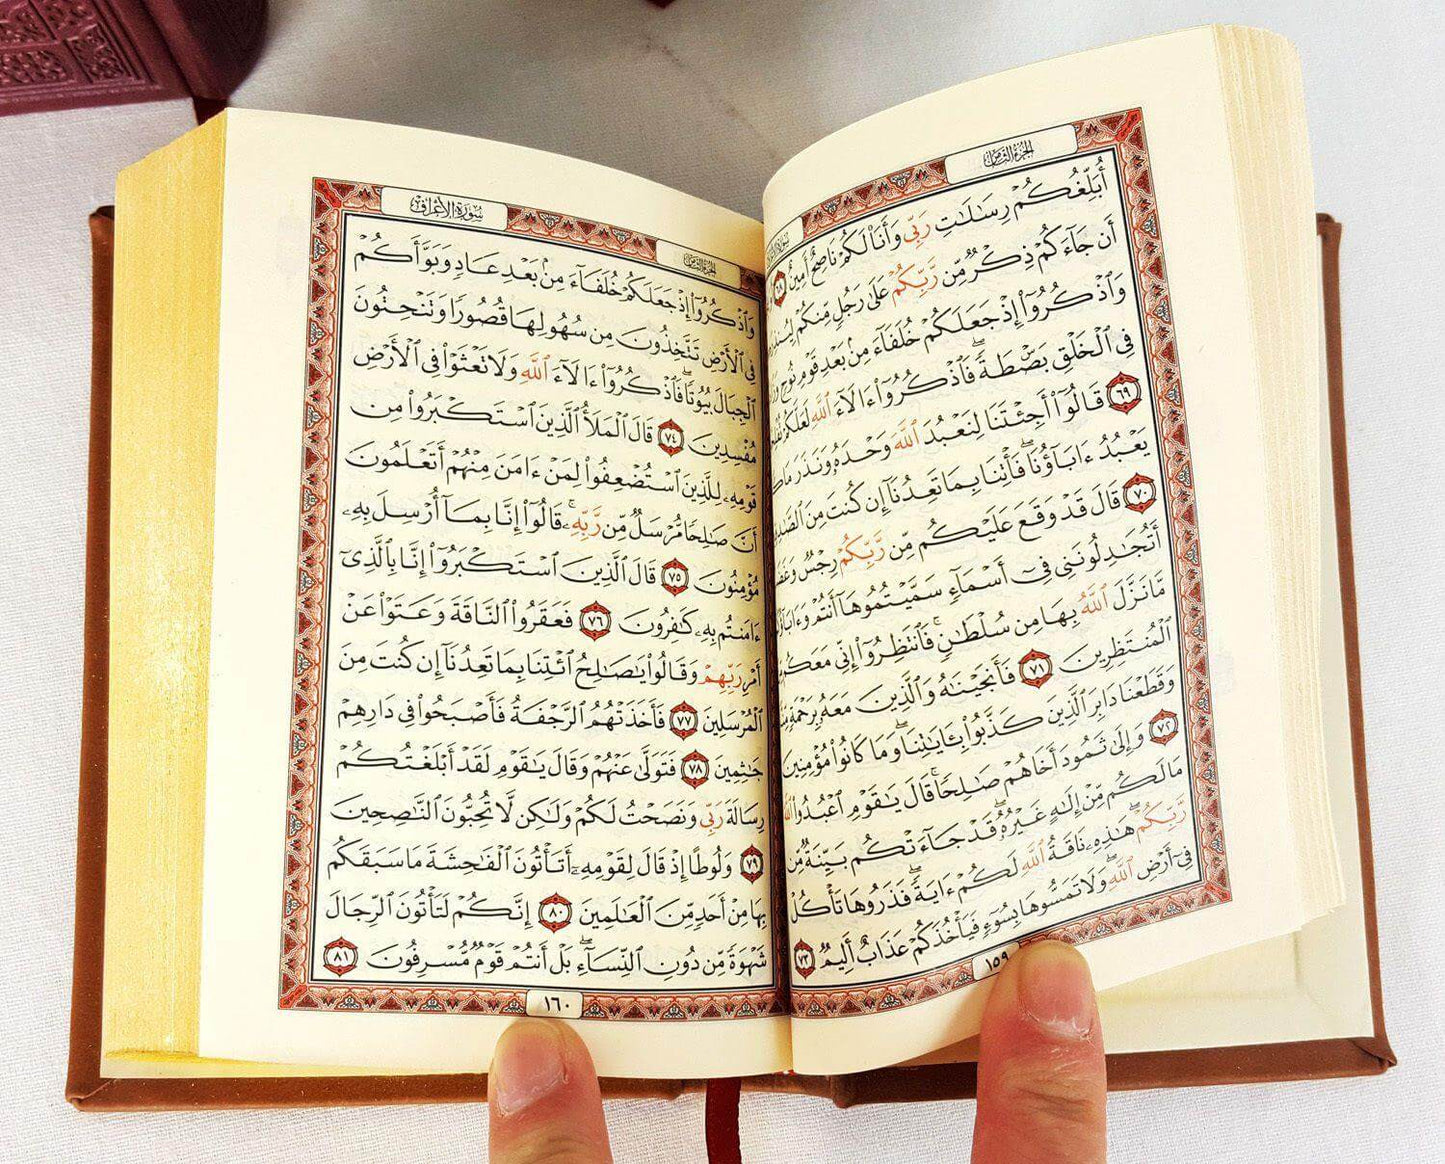 الجزء الثامن
أُبَلِّغُكُمْ رِسَٰلَٰتِ رَبِّى وَأَنَا۠ لَكُمْ نَاصِحٌ أَمِينٌ ٦٨
أَن جَآءَكُمْ ذِكْرٌ مِّن رَّبِّكُمْ عَلَىٰ رَجُلٍ مِّنكُمْ لِيُنذِرَ
وَٱذْكُرُوٓا۟ إِذْ جَعَلَكُمْ خُلَفَآءَ مِنۢ بَعْدِ قَوْمِ نُوحٍ
فِى ٱلْخَلْقِ بَصْۜطَةً ۖ فَٱذْكُرُوٓا۟ ءَالَآءَ ٱللَّهِ لَعَلَّكُمْ
٦٩ قَالُوٓا۟ أَجِئْتَنَا لِنَعْبُدَ ٱللَّهَ وَحْدَهُۥ وَنَذَرَ مَا
يَعْبُدُ ءَابَآؤُنَا ۖ فَأْتِنَا بِمَا تَعِدُنَآ إِن كُنتَ مِنَ
٧٠ قَالَ قَدْ وَقَعَ عَلَيْكُم مِّن رَّبِّكُمْ رِجْسٌ
أَتُجَٰدِلُونَنِى فِىٓ أَسْمَآءٍ سَمَّيْتُمُوهَآ أَنتُمْ
مَّا نَزَّلَ ٱللَّهُ بِهَا مِن سُلْطَٰنٍ ۚ فَٱنتَظِرُوٓا۟ إِنِّى مَعَكُم
ٱلْمُنتَظِرِينَ ٧١ فَأَنجَيْنَٰهُ وَٱلَّذِينَ مَعَهُۥ بِرَحْمَةٍ
وَقَطَعْنَا دَابِرَ ٱلَّذِينَ كَذَّبُوا۟ بِـَٔايَٰتِنَا ۖ وَمَا كَانُوا۟ مُؤْمِنِينَ
٧٢ وَإِلَىٰ ثَمُودَ أَخَاهُمْ صَٰلِحًا ۗ قَالَ يَٰقَوْمِ ٱعْبُدُوا۟ ٱللَّهَ
مَا لَكُم مِّنْ إِلَٰهٍ غَيْرُهُۥ ۖ قَدْ جَآءَتْكُم بَيِّنَةٌ مِّن
رَّبِّكُمْ ۖ هَٰذِهِۦ نَاقَةُ ٱللَّهِ لَكُمْ ءَايَةً ۖ فَذَرُوهَا تَأْكُلْ
فِىٓ أَرْضِ ٱللَّهِ ۖ وَلَا تَمَسُّوهَا بِسُوٓءٍ فَيَأْخُذَكُمْ عَذَابٌ أَلِيمٌ ٧٣
١٥٩
الجزء الثامن
سورة الأعراف
وَٱذْكُرُوٓا۟ إِذْ جَعَلَكُمْ خُلَفَآءَ مِنۢ بَعْدِ عَادٍ وَبَوَّأَكُمْ
فِى ٱلْأَرْضِ تَتَّخِذُونَ مِن سُهُولِهَا قُصُورًا وَتَنْحِتُونَ
ٱلْجِبَالَ بُيُوتًا ۖ فَٱذْكُرُوٓا۟ ءَالَآءَ ٱللَّهِ وَلَا تَعْثَوْا۟ فِى ٱلْأَرْضِ
مُفْسِدِينَ ٧٤ قَالَ ٱلْمَلَأُ ٱلَّذِينَ ٱسْتَكْبَرُوا۟ مِن
قَوْمِهِۦ لِلَّذِينَ ٱسْتُضْعِفُوا۟ لِمَنْ ءَامَنَ مِنْهُمْ أَتَعْلَمُونَ
أَنَّ صَٰلِحًا مُّرْسَلٌ مِّن رَّبِّهِۦ ۚ قَالُوٓا۟ إِنَّا بِمَآ أُرْسِلَ بِهِۦ
مُؤْمِنُونَ ٧٥ قَالَ ٱلَّذِينَ ٱسْتَكْبَرُوٓا۟ إِنَّا بِٱلَّذِىٓ
ءَامَنتُم بِهِۦ كَٰفِرُونَ ٧٦ فَعَقَرُوا۟ ٱلنَّاقَةَ وَعَتَوْا۟ عَنْ
أَمْرِ رَبِّهِمْ وَقَالُوا۟ يَٰصَٰلِحُ ٱئْتِنَا بِمَا تَعِدُنَآ إِن كُنتَ مِنَ
ٱلْمُرْسَلِينَ ٧٧ فَأَخَذَتْهُمُ ٱلرَّجْفَةُ فَأَصْبَحُوا۟ فِى دَارِهِمْ
جَٰثِمِينَ ٧٨ فَتَوَلَّىٰ عَنْهُمْ وَقَالَ يَٰقَوْمِ لَقَدْ أَبْلَغْتُكُمْ
رِسَالَةَ رَبِّى وَنَصَحْتُ لَكُمْ وَلَٰكِن لَّا تُحِبُّونَ ٱلنَّٰصِحِينَ
٧٩ وَلُوطًا إِذْ قَالَ لِقَوْمِهِۦٓ أَتَأْتُونَ ٱلْفَٰحِشَةَ مَا سَبَقَكُم
بِهَا مِنْ أَحَدٍ مِّنَ ٱلْعَٰلَمِينَ ٨٠ إِنَّكُمْ لَتَأْتُونَ ٱلرِّجَالَ
شَهْوَةً مِّن دُونِ ٱلنِّسَآءِ ۚ بَلْ أَنتُمْ قَوْمٌ مُّسْرِفُونَ ٨١
١٦٠